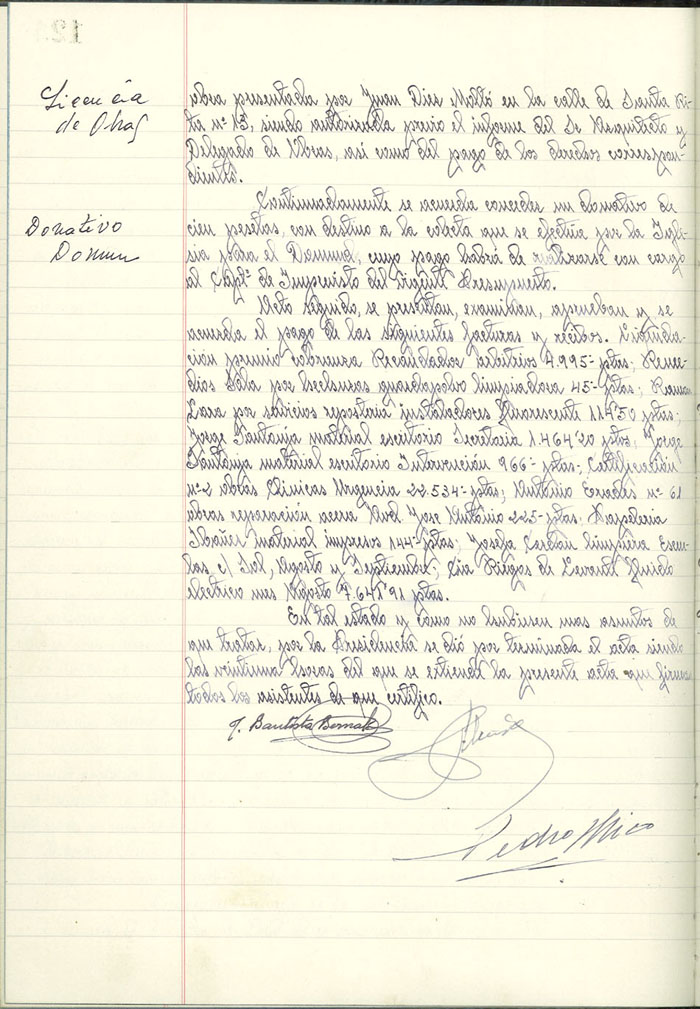 Licencia
de Obras
obra presentada por Juan Dies Moltó en la calle de Santa Ri-
ta nº 13, siendo autorizada previo el informe del Sr Arquitecto y
Delegado de Obras, así como del pago de los derechos correspon-
dientes.
Donativo
Domun
Continuadamente se acuerda conceder un donativo de
cien pesetas, con destino a la colecta que se efectua por la Igle-
sia para el Domund, cuyo pago habrá de realizarse con cargo
al Capº de Imprevisto del vigente Presupuesto.
Acto seguido, se presentan, examinan, aprueban y se
acuerda el pago de las siguientes facturas y recibos. Liquida-
ción premio cobranza Recaudador arbitrios 4.995'- ptas; Reme-
dios por guardapolvo limpiadora 45'- ptas; Ramon
Lara por servicios reposteria instaladores fluorescente 114'50 ptas;
Jorge material escritorio Secretaria 1.464'20 ptas; Jorge
material escritorio Intervención 966'- ptas; Certificación
nº 2 obras Clinicas Urgencia 22.534'- ptas; Antonio nº 61
obras reparación acera Avd. Jose Antonio 225'- ptas;
Ibañez material impresos 144'- ptas; Josefa limpieza Escue-
las c/ Sol, Agosto y Septiembre; Cia Riegos de Levante fluido
electrico mes Agosto 7.641'91 ptas.
En tal estado y como no hubiesen mas asuntos de
que tratar, por la Presidencia se dió por terminada el acta siendo
las veintiuna horas del que se extiende la presente acta que firman
todos los asistentes de que certifico.
J. Bautista Bernabé
Pedro Mico